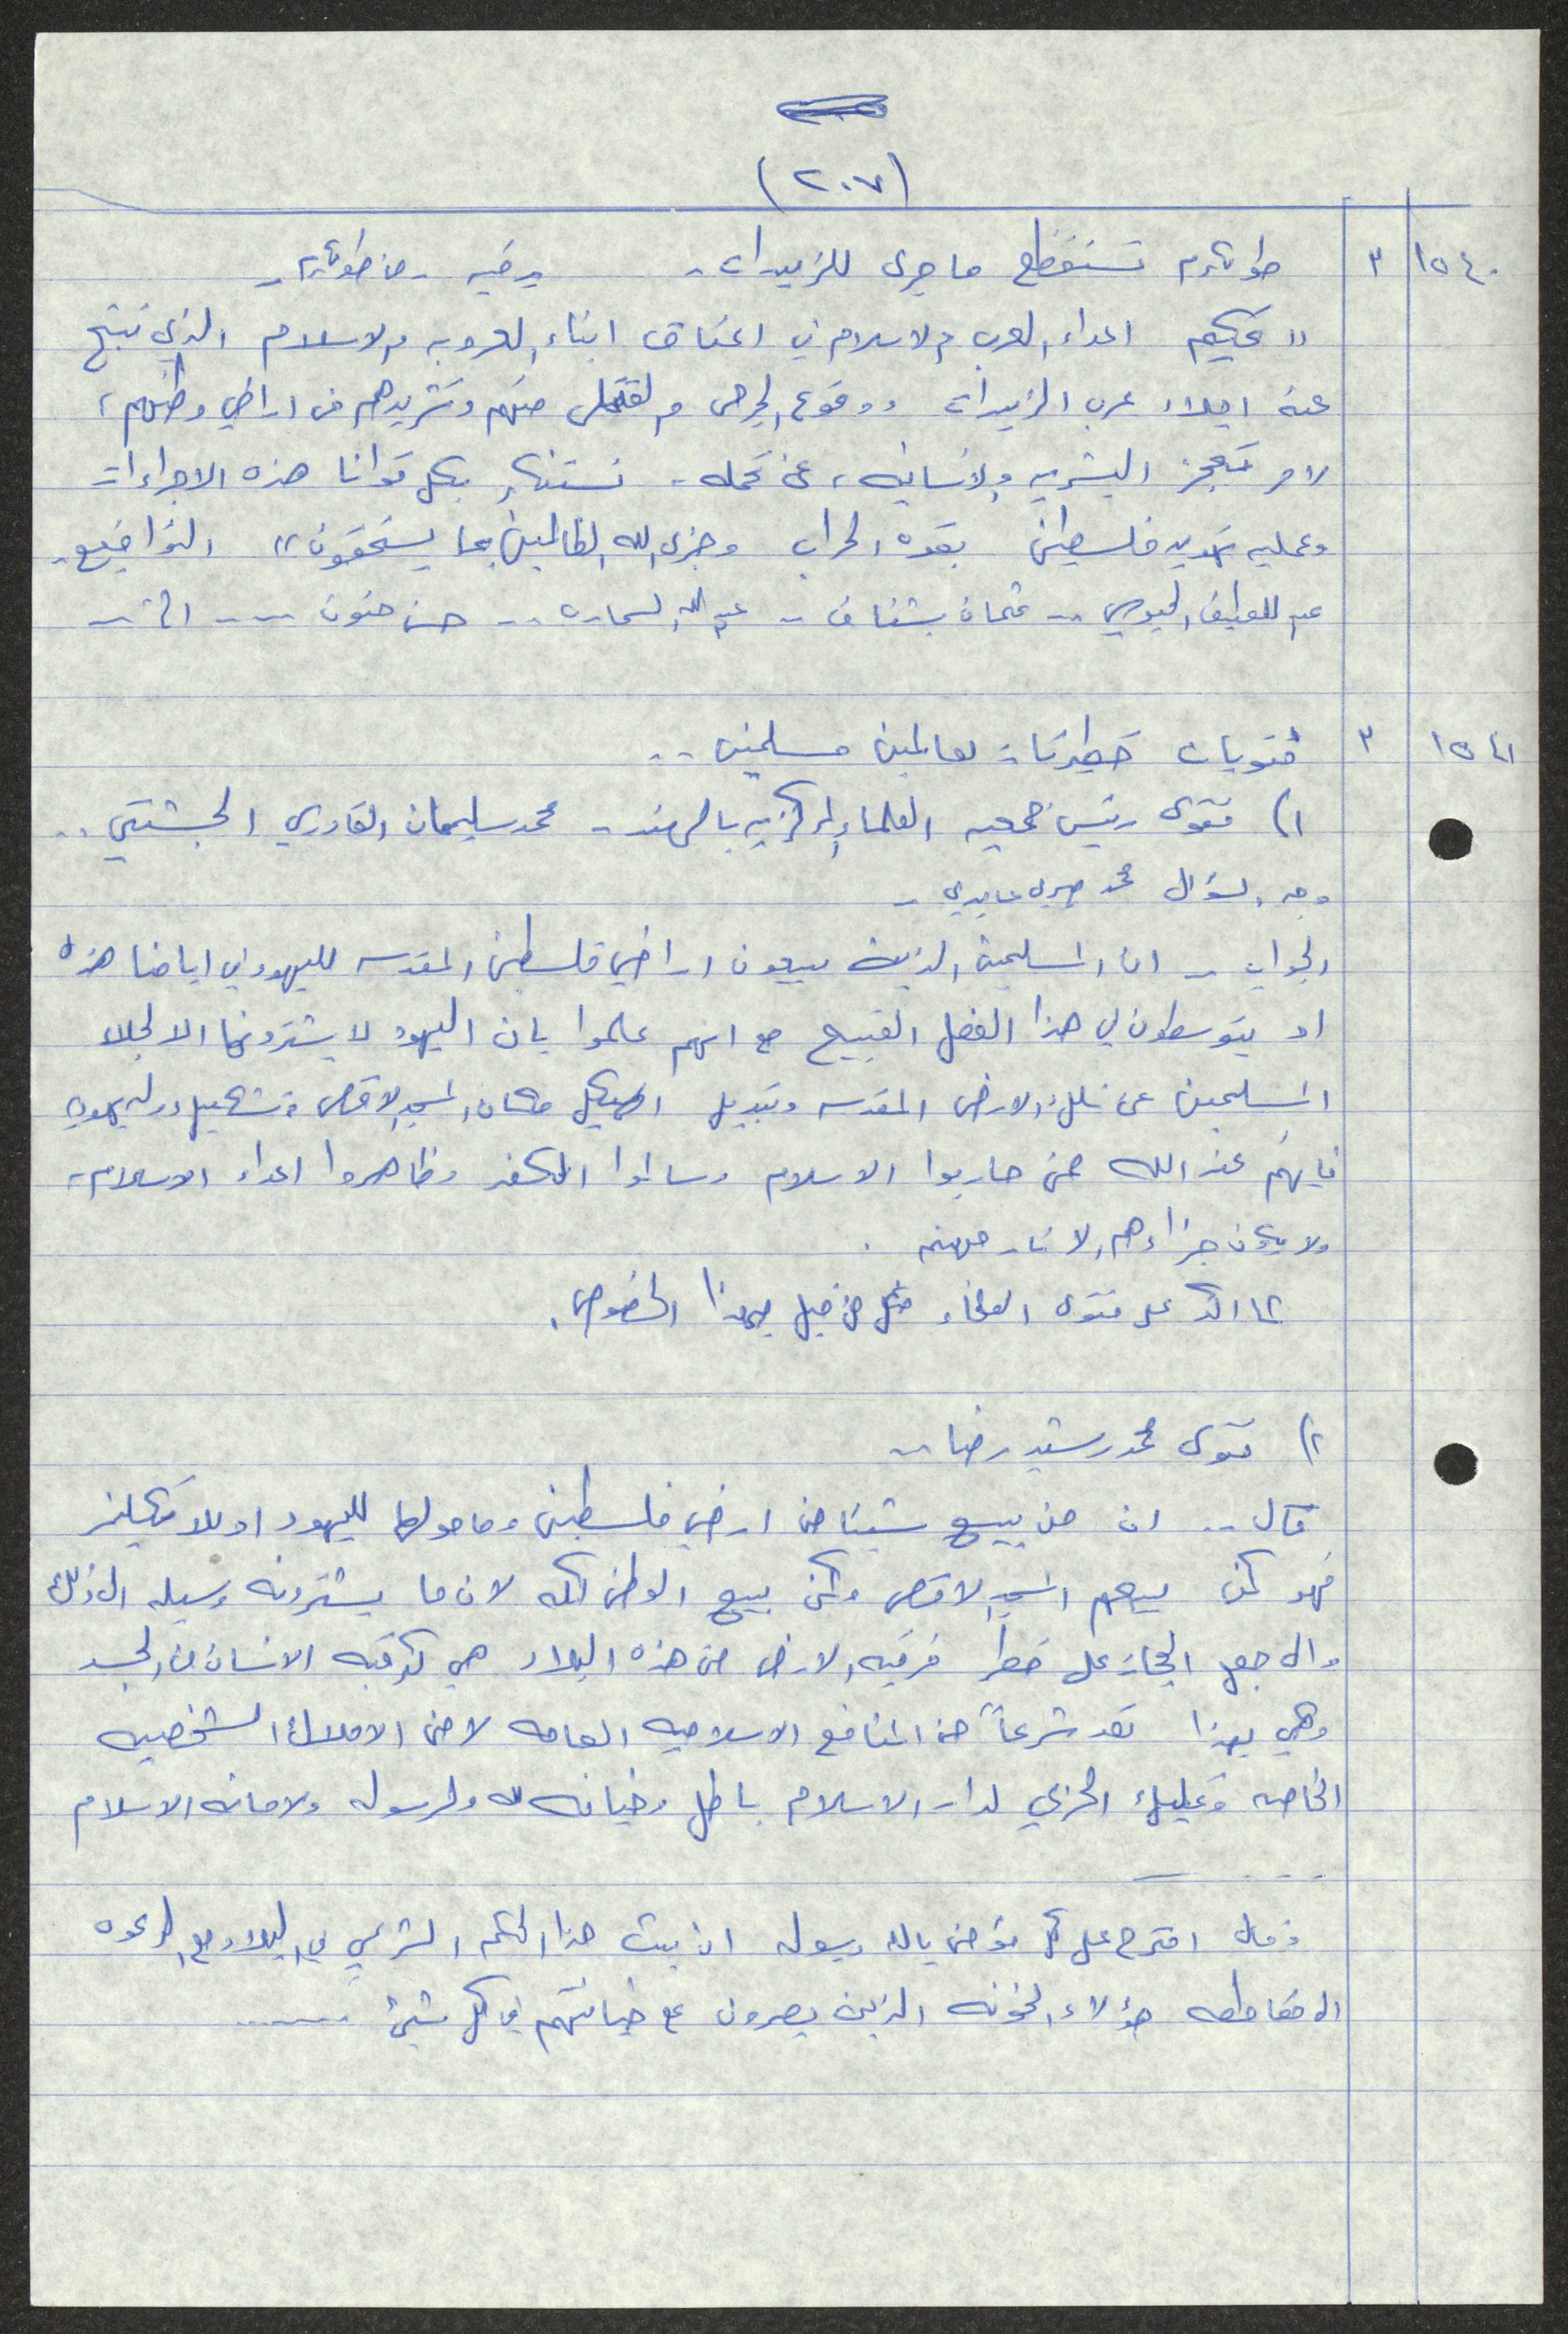 (٢٠٧)
١٥٤٠ ٣ طولكرم تستفظع ما جرى للزبيدات - برقيه - من طولكرم -
" تحكيم اعداء العرب والاسلام في اعناق ابناء العروبه والاسلام الذي نتج
عنه اجلاء عرب الزبيدات ووقوع الجرحى والقتلى منهم وتشريدهم من اراضي وطنهم ،
لامر تعجز البشريه والانسانيه ، عن تحمله - نستنكر بكل قوانا هذه الاجراءات
وعمليه تهويد فلسطين بقوه الحراب وجزى الله الظالمين بما يستحقون " التواقيع -
عبد اللطيف الجيوسي -- عثمان بشناق -- عبد الله السماره -- حسن حنون ---- الخ --
١٥٤١ ٣ فتويات خطيرتان لعالمين مسلمين ..
١) فتوى رئيس جمعيه العلماء المركزيه بالهند - محمد سليمان القادري الجشتي ..
وجه السؤال محمد صبري عابدي -
الجواب -- ان المسلمين الذين يبيعون اراضي فلسطين المقدسه لليهود في ايامنا هذه
او يتوسطون في هذا الفعل القبيح مع انهم علموا بان اليهود لا يشترونها الا لجلاء
المسلمين عن تلك الارض المقدسه وتبديل الهيكل مكان المسجد الاقصى وتشكيل دوله يهوديه
فانهم عند الله ممن حاربوا الاسلام وسالموا الكفر وظاهروا اعداء الاسلام ،
ولا يكون جزاءهم الا نار جهنم .
كما اكد على فتوى العلماء من قبل بهذا الخصوص .
٢) فتوى محمد رشيد رضا --
قال .. ان من يبيع شيئا من ارض فلسطين وما حولها لليهود او للانكليز
فهو كمن يبيعهم المسجد الاقصى وكمن يبيع الوطن كله لان ما يشترونه وسيله الى ذلك
والى جعل الحجاز على خطر فرقبه الارض من هذه البلاد هي كرقبه الانسان من الجسد
وهي بهذا تعد شرعاً من المنافع الاسلاميه العامه لا من الاملاك الشخصيه
الخاصه وتمليك الحربي لدار الاسلام باطل وخيانه لله ولرسوله ولامانه الاسلام
....
وقال اقترح على كل مؤمن بالله ورسوله ان يبث هذا الحكم الشرعي في البلاد مع الدعوه
الى مقاطعه هؤلاء الخونه الذين يصرون على خيانتهم في كل شيئ ......